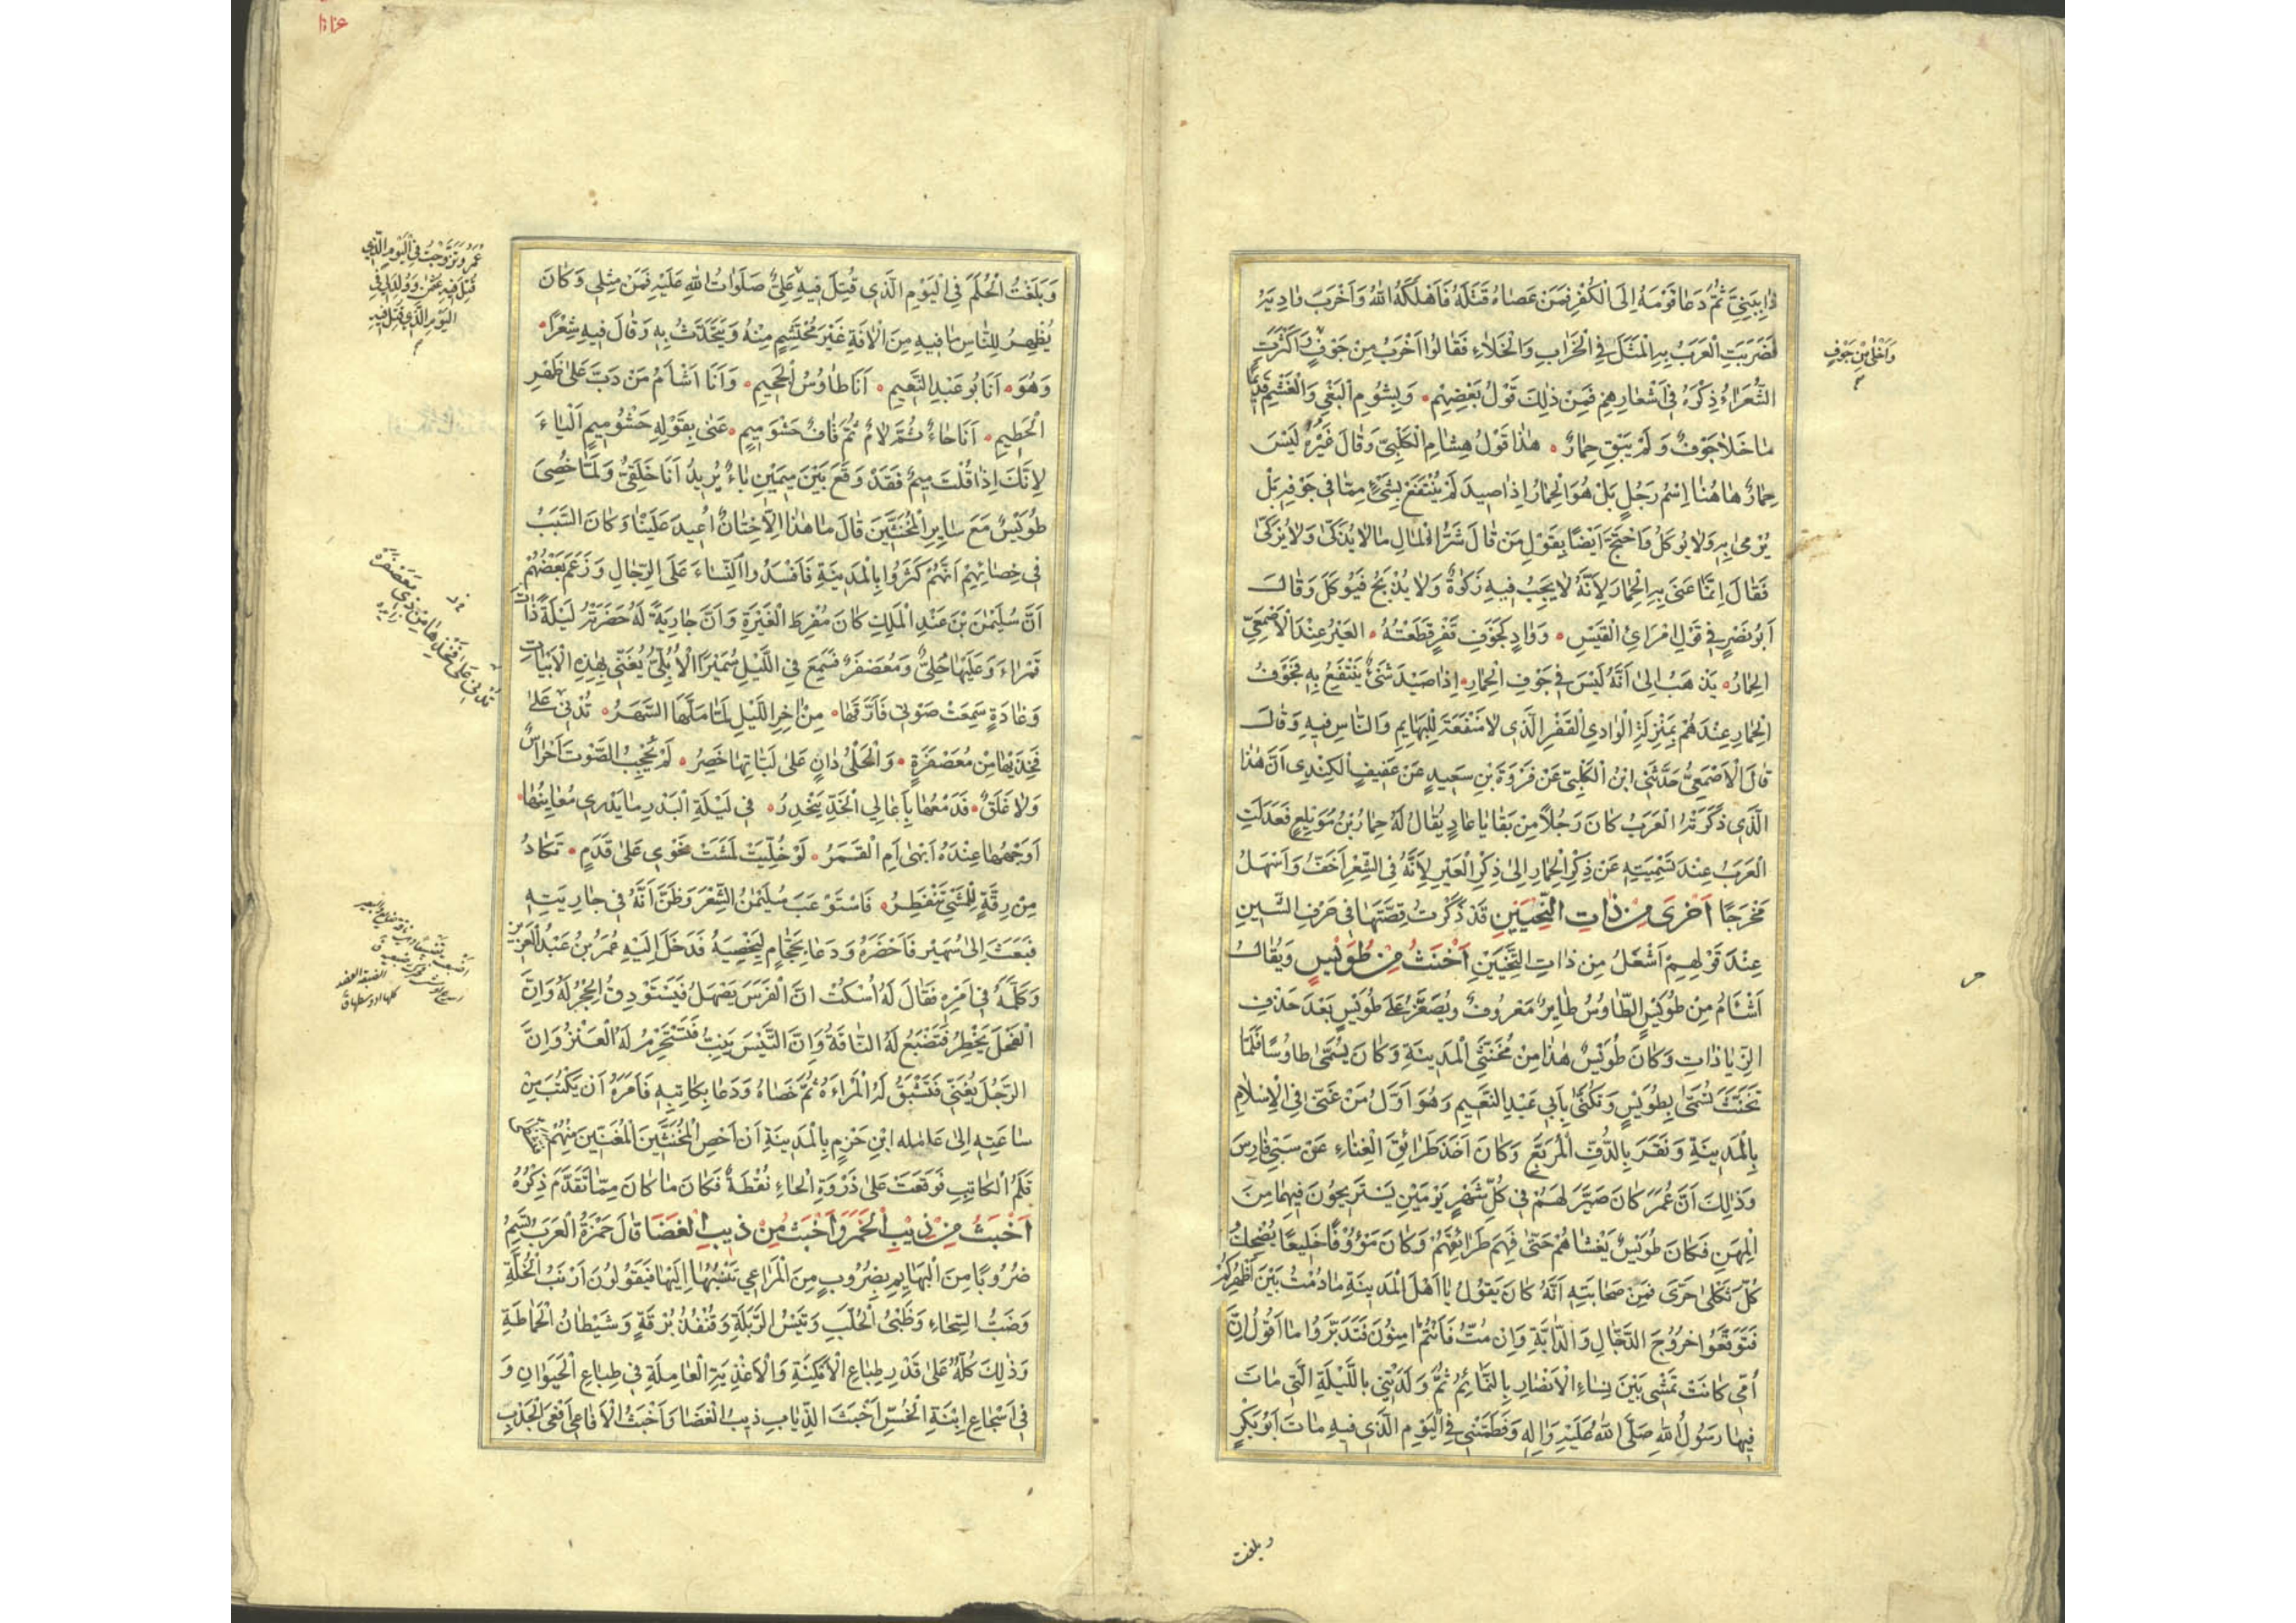 ذَا بِبَنِيَّ ثُمَّ دَعَا قَوْمَهُ اِلَى الْكُفْرِ فَمَنْ عَصَاهُ قَتَلَهُ فَاَهْلَكَهُ اللهُ وَاَخْرَبَ وَادِيَهُ
فَضَرَبَتِ الْعَرَبُ بِهِ الْمَثَلَ فِي الْخَرَابِ وَالْخَلَاءِ فَقَالُوا اَخْرَبُ مِنْ جَوْفٍ وَاَكْثَرَتِ
وَاَخْلٰى مِنْ جَوْفٍ
الشُّعَرَاءُ ذِكْرَهُ فِي اَشْعَارِهِمْ فَمِنْ ذٰلِكَ قَوْلُ بَعْضِهِمْ وَبِشُومِ الْبَغْيِ وَالْغَشْمِ قَدِيمًا
مَا خَلَا جَوْفٌ وَلَمْ يَبْقِ حِمَارٌ هٰذَا قَوْلُ هِشَامِ الْكَلْبِيِّ وَقَالَ غَيْرُهُ لَيْسَ
حِمَارٌ هَاهُنَا اِسْمُ رَجُلٍ بَلْ هُوَ الْحِمَارُ اِذَا صِيدَ لَمْ يُنْتَفَعْ بِشَيْءٍ مِمَّا فِي جَوْفِهِ بَلْ
يُرْمٰى بِهِ وَلَا يُوكَلُ وَاحْتَجَّ اَيْضًا بِقَوْلِ مَنْ قَالَ شَرُّ الْمَالِ مَا لَا يُذَكّٰى وَلَا يُزَكّٰى
فَقَالَ اِنَّمَا عَنٰى بِهِ الْحِمَارَ لِاَنَّهُ لَا يَجِبُ فِيهِ زَكٰوةٌ وَلَا يُذْبَحُ فَيُوكَلَ وَقَالَ
اَبُو نَصْرٍ فِي قَوْلِ امْرَائِ الْقَيْسِ وَوَادٍ كَجَوْفِ الْعَيْرِ قَفْرٍ قَطَعْتُهُ الْعَيْرُ عِنْدَ الْاَصْمَعِيِّ
الْحِمَارُ يَذْهَبُ اِلٰى اَنَّهُ لَيْسَ فِي جَوْفِ الْحِمَارِ اِذَا صِيدَ شَيْءٌ يُنْتَفَعُ بِهِ فَجَوْفُ
الْحِمَارِ عِنْدَهُمْ بِمَنْزِلَةِ الْوَادِي الْقَفْرِ الَّذِي لَا مَنْفَعَةَ لِلْبَهَايِمِ وَالنَّاسِ فِيهِ وَقَالَ
قَالَ الْاَصْمَعِيُّ حَدَّثَنِي ابْنُ الْكَلْبِيِّ عَنْ فَرْوَةَ بْنِ سَعِيدٍ عَنْ عَفِيفٍ الْكِنْدِي اَنَّ هٰذَا
الَّذِي ذَكَرَتْهُ الْعَرَبُ كَانَ رَجُلًا مِنْ بَقَايَا عَادٍ يُقَالُ لَهُ حِمَارُ بْنُ مُوَيْلِعٍ فَعَدَلَتِ
الْعَرَبُ عِنْدَ تَسْمِيَتِهِ عَنْ ذِكْرِ الْحِمَارِ اِلٰى ذِكْرِ الْعَيْرِ لِاَنَّهُ فِي الشِّعْرِ اَخَفُّ وَاَسْهَلُ
مَخْرَجًا اَخْزٰى مِنْ ذَاتِ النِّحْيَيْنِ قَدْ ذَكَرْتُ قِصَّتَهَا فِي حَرْفِ الشِّينِ
عِنْدَ قَوْلِهِمْ اَشْغَلُ مِنْ ذَاتِ النِّحْيَيْنِ اَخْنَثُ مِنْ طُوَيْسٍ وَيُقَالُ
اَشْاَمُ مِنْ طُوَيْسٍ الطَّاوُسُ طَايِرٌ مَعْرُوفٌ وَيُصَغَّرُ عَلَى طُوَيْسٍ بَعْدَ حَذْفِ
الزِّيَادَاتِ وَكَانَ طُوَيْسٌ هٰذَا مِنْ مُخَنَّثِي الْمَدِينَةِ وَكَانَ يُسَمّٰى طَاوُسًا فَلَمَّا
تَخَنَّثَ تُسَمّٰى بِطُوَيْسٍ وَتَكَنّٰى بِاَبِي عَبْدِ النَّعِيمِ وَهُوَ اَوَّلُ مَنْ غَنّٰى فِي الْاِسْلَامِ
بِالْمَدِينَةِ وَنَقَرَ بِالدُّفِّ الْمُرَبَّعِ وَكَانَ اَخَذَ طَرَائِقَ الْغِنَاءِ عَنْ سَبْيِ فَارِسَ
وَذٰلِكَ اَنَّ عُمَرَ كَانَ صَيَّرَ لَهُمْ فِي كُلِّ شَهْرٍ يَوْمَيْنِ يَسْتَرِيحُونَ فِيهِمَا مِنَ
الْمِهَنِ فَكَانَ طُوَيْسٌ يَغْشَاهُمْ حَتّٰى فَهِمَ طَرَائِقَهُمْ وَكَانَ مَؤُوفًا خَلِيعًا يُضْحِكُ
كُلَّ ثَكْلٰى حَرّٰى فَمِنْ مَجَانَتِهِ اَنَّهُ كَانَ يَقُولُ يَا اَهْلَ الْمَدِينَةِ مَا دُمْتُ بَيْنَ اَظْهُرِكُمْ
فَتَوَقَّعُوا خُرُوجَ الدَّجَّالِ وَالدَّابَّةِ وَاِنْ مُتُّ فَاَنْتُمْ اٰمِنُونَ فَتَدَبَّرُوا مَا اَقُولُ اِنَّ
اُمِّي كَانَتْ تَمْشِي بَيْنَ نِسَاءِ الْاَنْصَارِ بِالنَّمَائِمُ ثُمَّ وَلَدَتْنِي بِاللَّيْلَةِ الَّتِي مَاتَ
فِيهَا رَسُولُ اللهِ صَلَّى اللهُ عَلَيْهِ وَاٰلِهِ وَفَطَمَتْنِي فِي الْيَوْمِ الَّذِي فِيهِ مَاتَ اَبُو بَكْرٍ
وبلغت
وَبَلَغْتُ الْحُلُمَ فِي الْيَوْمِ الَّذِي قُتِلَ فِيهِ عَلِيٌّ صَلَوَاتُ اللهِ عَلَيْهِ فَمَنْ مِثْلِي وَكَانَ
عُمَرُ وَتَزَوَّجْتُ فِي الْيَوْمِ الَّذِي
قُتِلَ فِيهِ عُثْمٰنُ وَوُلِدَ لِي فِي
الْيَوْمِ الَّذِي قُتِلَ فِيهِ
يُظْهِرُ لِلنَّاسِ مَا فِيهِ مِنَ الْاٰفَةِ غَيْرَ مُحْتَشِمٍ مِنْهُ وَيَتَحَدَّثُ بِهِ وَقَالَ فِيهِ شِعْرًا
وَهُوَ اَنَا بُو عَبْدِ النَّعِيمِ اَنَا طَاوُسُ الْجَحِيمِ وَاَنَا اَشْاَمُ مَنْ دَبَّ عَلٰى ظَهْرِ
الْحَطِيمِ اَنَا حَاءٌ ثُمَّ لَامٌ ثُمَّ قَافٌ حَشْوُ مِيمٍ عَنٰى بِقَوْلِهِ حَشْوُ مِيمٍ اَلْيَاءَ
لِاَنَّكَ اِذَا قُلْتَ مِيمٌ فَقَدْ وَقَعَ بَيْنَ مِيمَيْنِ يَاءٌ يُرِيدُ اَنَا حَلَقِيٌّ وَلَمَّا خُصِيَ
طُوَيْسٌ مَعَ سَايِرِ الْمُخَنَّثِينَ قَالَ مَا هٰذَا اِلَّا خِتَانٌ اُعِيدَ عَلَيْنَا وَكَانَ السَّبَبُ
فِي خِصَائِهِمْ اَنَّهُمْ كَثُرُوا بِالْمَدِينَةِ فَاَفْسَدُوا النِّسَاءَ عَلَى الرِّجَالِ وَزَعَمَ بَعْضُهُمْ
اَنَّ سُلَيْمٰنَ بْنَ عَبْدِ الْمَلِكِ كَانَ مُفْرِطَ الْغَيْرَةِ وَاَنَّ جَارِيَةً لَهُ حَضَرَتْهُ لَيْلَةً ذَاتَ
قَمْرَاءَ وَعَلَيْهَا حُلِيٌّ وَمُعَصْفَرٌ فَسَمِعَ فِي اللَّيْلِ سُمَيْرًا الْاُبُلِّيَّ يُغَنِّي بِهٰذِهِ الْاَبْيَاتِ
وَغَادَةٍ سَمِعَتْ صَوْتِي فَاَرَّقَهَا مِنْ اٰخِرِ اللَّيْلِ لَمَّا مَلَّهَا السَّهَرُ تُدْنِي عَلٰى
فَخِذَيْهَا مِنْ مُعَصْفَرَةٍ وَالْحَلْيُ دَانٍ عَلٰى لَبَّاتِهَا خَصِرُ لَمْ يَحْجِبُ الصَّوْتَ اَحْرَاسٌ
وَلَا غَلَقٌ فَدَمْعُهَا بِاَعَالِي الْخَدِّ يَنْحَدِرُ فِي لَيْلَةِ الْبَدْرِ مَا يَدْرِي مُعَايِنُهَا
اَوَجْهُهَا عِنْدَهُ اَبْهٰى اَمِ الْقَمَرُ لَوْ خُلِّيَتْ لَمَشَتْ نَحْوِي عَلٰى قَدَمٍ تَكَادُ
مِنْ رِقَّةٍ لِلْمَشْيِ تَنْفَطِرُ فَاسْتَوْعَبَ سُلَيْمٰنُ الشِّعْرَ وَظَنَّ اَنَّهُ فِي جَارِيَتِهِ
فَبَعَثَ اِلٰى سُمَيْرٍ فَاَحْضَرَهُ وَدَعَا بِحَجَّامٍ لِيَخْصِيَهُ فَدَخَلَ اِلَيْهِ عُمَرُ بْنُ عَبْدِ الْعَزِيزِ
وَكَلَّمَهُ فِي اَمْرِهِ فَقَالَ لَهُ اُسْكُتْ اِنَّ الْفَرَسَ يَصْهَلُ فَيَسْتَوْدِقُ الْحِجْرُ لَهُ وَاِنَّ
الْفَحْلَ يَخْطِرُ فَتَضْبَعُ لَهُ النَّاقَةُ وَاِنَّ التَّيْسَ يَنِبُّ فَتَسْتَحْرِمُ لَهُ الْعَنْزُ وَاِنَّ
الرَّجُلَ يُغَنِّي فَتَشْبَقُ لَهُ الْمَرْاَةُ ثُمَّ خَصَاهُ وَدَعَا بِكَاتِبِهِ فَاَمَرَهُ اَنْ يَكْتُبَ مِنْ
سَاعَتِهِ اِلٰى عَامِلِهِ ابْنِ حَزْمٍ بِالْمَدِينَةِ اَنْ اَحْصِ الْمُخَنَّثِينَ الْمُغَنِّينَ مِنْهُمْ
قَلَمُ الْكَاتِبِ فَوَقَعَتْ عَلٰى ذَرْوَةِ الْحَاءِ نُقْطَةٌ فَكَانَ مَا كَانَ مِمَّا تَقَدَّمَ ذِكْرُهُ
اَخْبَثُ مِنْ ذِيبِ الْخَمَرِ وَاَخْبَثُ مِنْ ذِيبِ الْغَضَا قَالَ حَمْزَةُ الْعَرَبُ تُسَمِّي
ضُرُوبًا مِنَ الْبَهَايِمِ بِضُرُوبٍ مِنَ الْمَرَاعِي تَنْسُبُهَا اِلَيْهَا فَيَقُولُونَ اَرْنَبُ الْخُلَّةِ
وَضَبُّ السِّحَاءِ وَظَبْيُ الْحُلَّبِ وَتَيْسُ الرَّبْلَةِ وَقُنْفُذُ بُرْقَةٍ وَشَيْطَانُ الْحَمَاطَةِ
وَذٰلِكَ كُلُّهُ عَلٰى قَدْرِ طِبَاعِ الْاَمْكِنَةِ وَالْاَغْذِيَةِ الْعَامِلَةِ فِي طِبَاعِ الْحَيَوَانِ وَ
فِي اَسْجَاعِ ابْنَةِ الْخُسِّ اَخْبَثُ الذِّيَابِ ذِيبُ الْغَضَا وَاَخْبَثُ الْاَفَاعِي اَفْعَى الْجَدْبِ